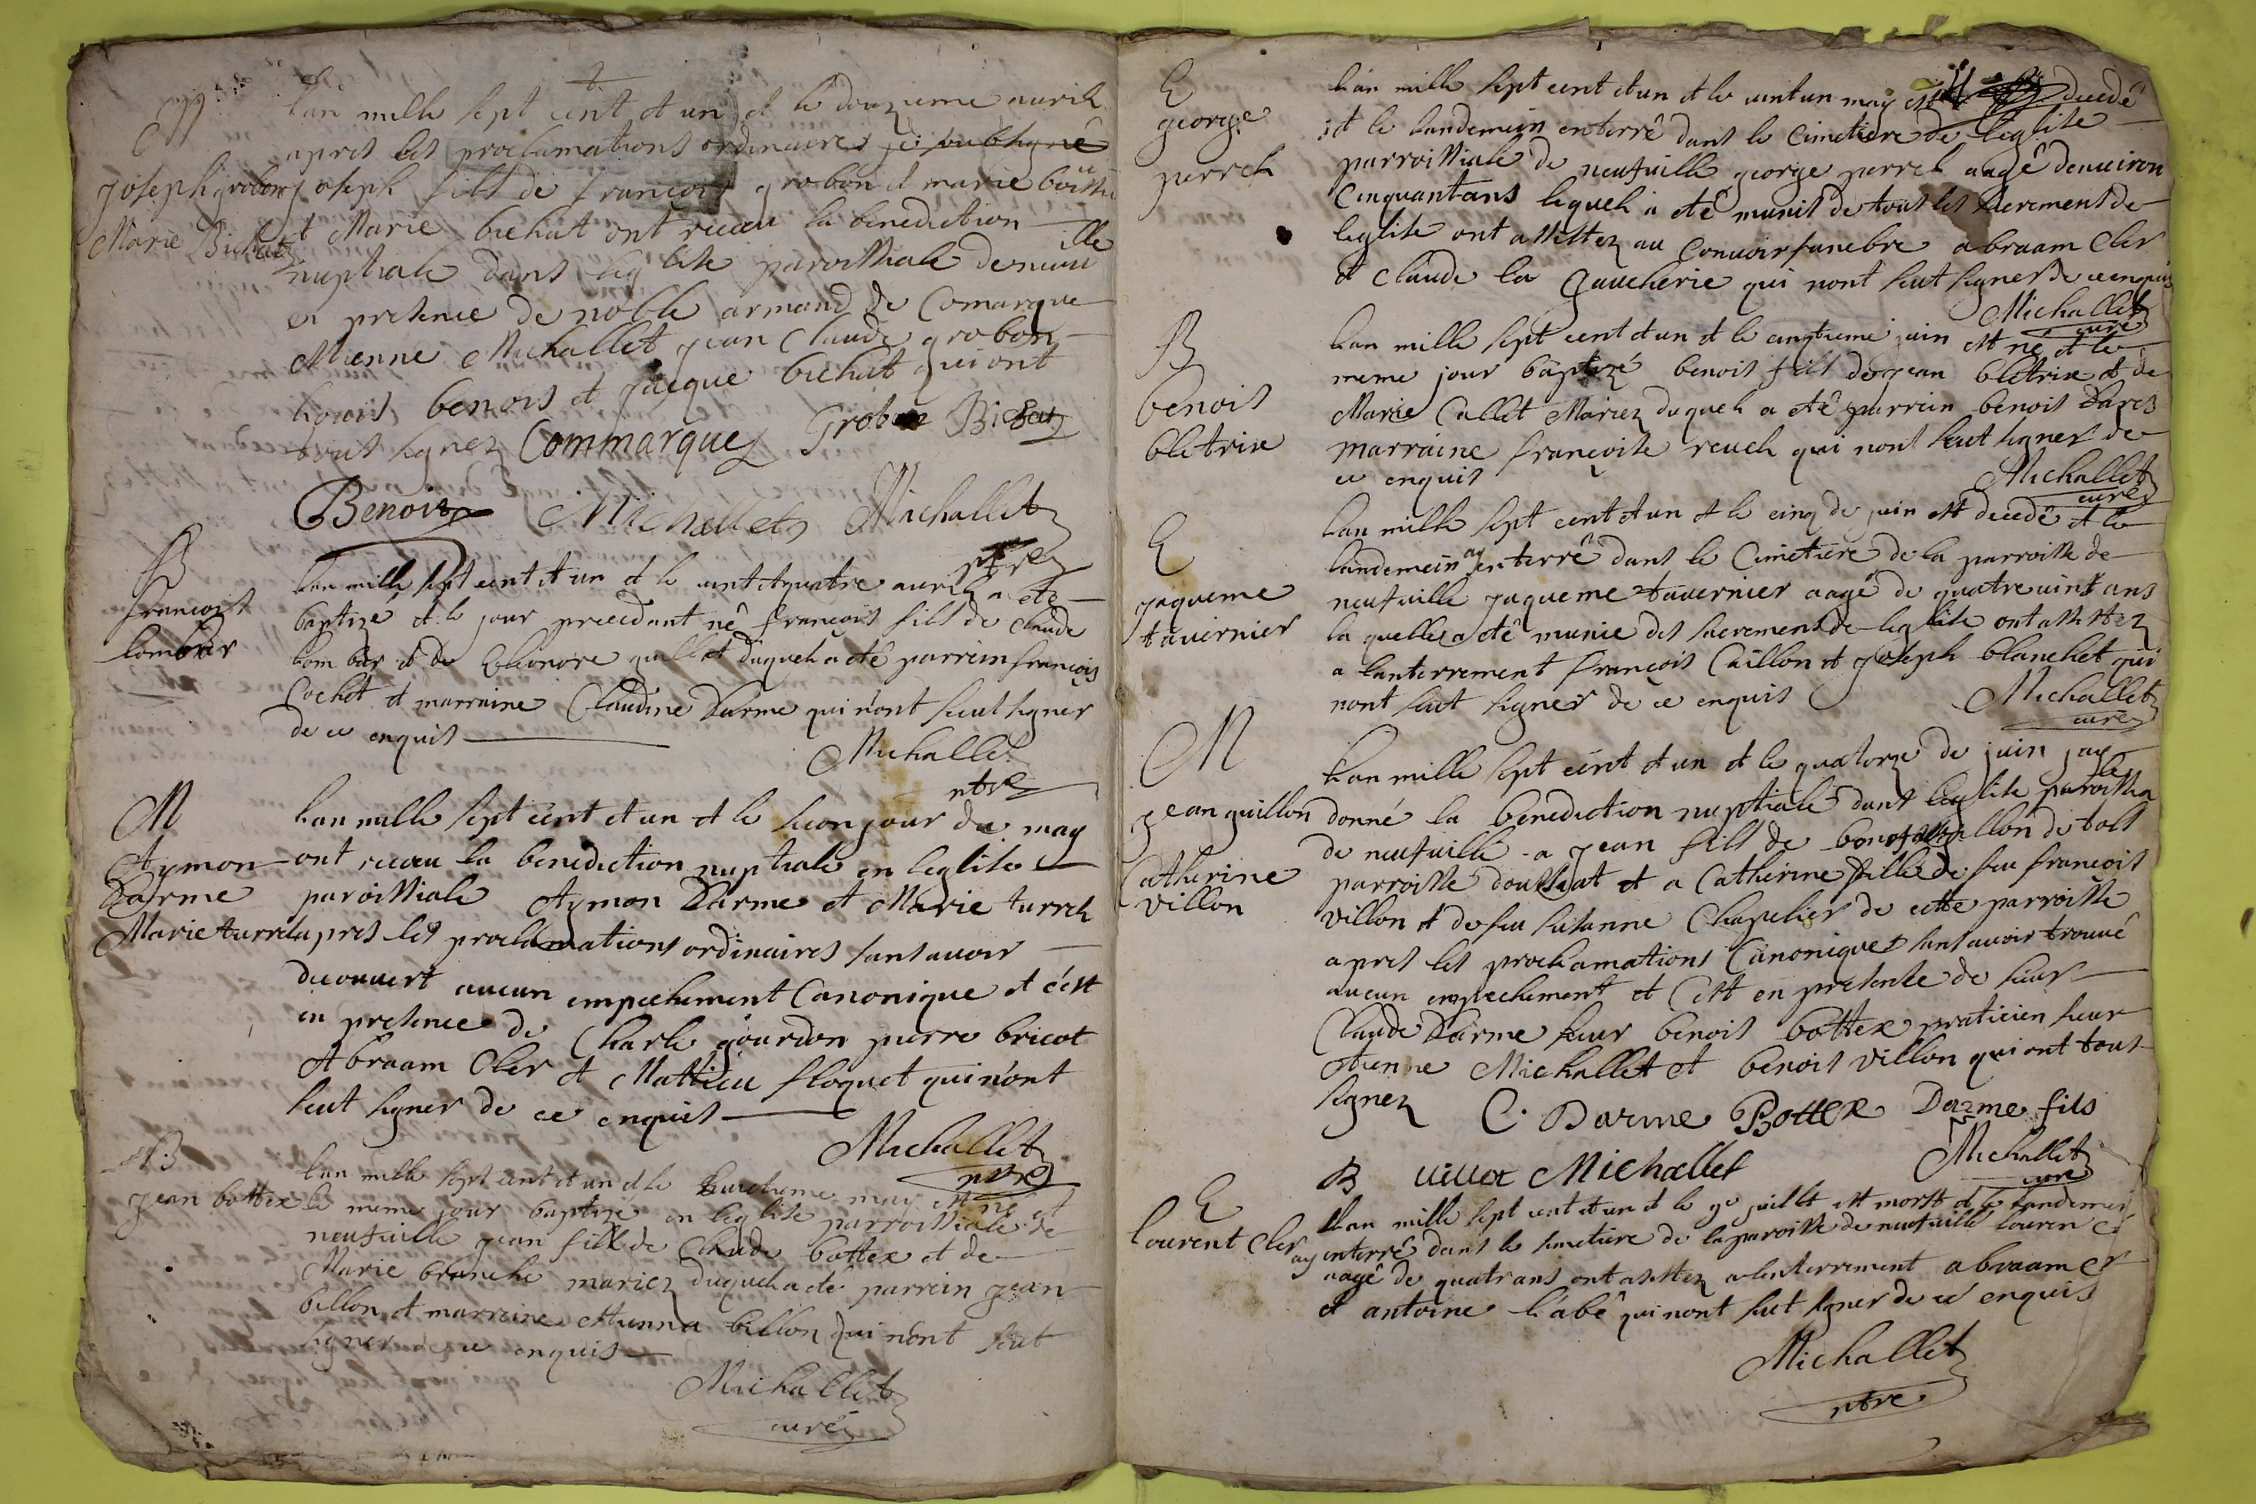 M
Joseph grobon
Marie Bichat
lan mille sept cent et un et le douzieme avrik
apres les proclamations ordinaires je soubsigné
joseph fils de françois grobon et marie
et Marie bichat ont receu la benediction
nuptiale dans leglise paroissiale de neuu ille
en presence de noble armand de Comarque
etienne Michallet jean Claude grobon
benois et jacque bichat qui ont
tous signez Commarque Grobon Bichat
Benoist Michallet Michallet
ptre
B
francois
lombar
lan mille sept cent et un et le uint et quatre auril a été
baptize et le jour precedant né françois fils de claude
lombar et de Eleonore gallet duquel a eté parrein françois
Cochet et marraine Claudine Darme qui nont seut signer
de ce enquis
Michallet
ptre
M
Aymon
Darme
Marie turrel
lan mille sept cent et un et le secon jour du may
ont receu la benediction nuptiale en leglise
paroissiale Aymon Darme et Marie turrel
apres les proclamations ordinaires sans avoir
decouuert aucun empechement Canonique et c'est
en presence de Charle gourdon pierre bricot
Abraam Cler et Mattieu floquet qui n'ont
seut signer de ce enquis
Michallet
ptre
B
jean bottex
lan mille sept cent et un et le huictieme may est né et
le meme jour baptizé en leglise parroissiale de
neufuille jean fils de Claude bottex et de
Marie branche mariez duquel a eté parrein jean
billon et marreine etienna billon qui n'ont seut
signer de ce enquis
Michallet
curé
E
george
perrel
lan mille sept cent et un et le uint un may est decedé
et le landemein enterré dans le Cimetiere de leglise
parroissiale de neufuille george perrel aagé denuiron
Cinquant ans lequel a eté munis de tous les sacrements de
leglise ont assistez au Conuoir funebre abraam Cler
et claude la gaucherie qui nont seut signer de ce enquis
Michallet
curé
B
benois
bletrix
lan mille sept cent et un et le cinqieme juin est né et le
meme jour baptizé benois fils de jean bletrix et de
Marie Callet Mariez duquel a eté parrein benois
marraine françoise reuel qui nont seut signer de
ce enquis
Michallet
curé
E
jaqueme
tauernier
lan mille sept cent et un et le cinq de juin est decedé et le
landemein ay enterré dans le Cimetiere de la parroisse de
neufuille jaqueme tauernier aagé de quatre uint ans
la quelle a eté munie des sacrements de leglise ont assistez
a lanterrement françois Caillon et joseph blanchet qui
nont seut signer de ce enquis
Michallet
curé
M
jean guillon
Catherine
villon
lan mille sept cent et un et le quatorze de juin jay
donné la benediction nuptiale dans leglise paroissialle
de neufuille a jean fils de benoist guillon de
parroisse doussiat et a Catherine fille de feu françois
villon et de feu susanne Chapelier de cette parroisse
apres les proclamations Canoniques sans avoir trouué
aucun empechement et C'est en presence de sieur
Claude Darme sieur benois bottex praticien sieur
etienne Michallet et benois villon qui ont tous
signez C. Darme Bottex Darme fils
B villon Michallet Michallet
curé
E
lourent Cler
lan mille sept cent et un et le 9e juillet est mort et le landemein
ay enterré dans le simetiere de la parroisse de neufuille louren
aagé de quatr ans ont asistez a lenterrement abraam Cler
et antoine l'abé qui nont seut signer de ce enquis
Michallet
ptre